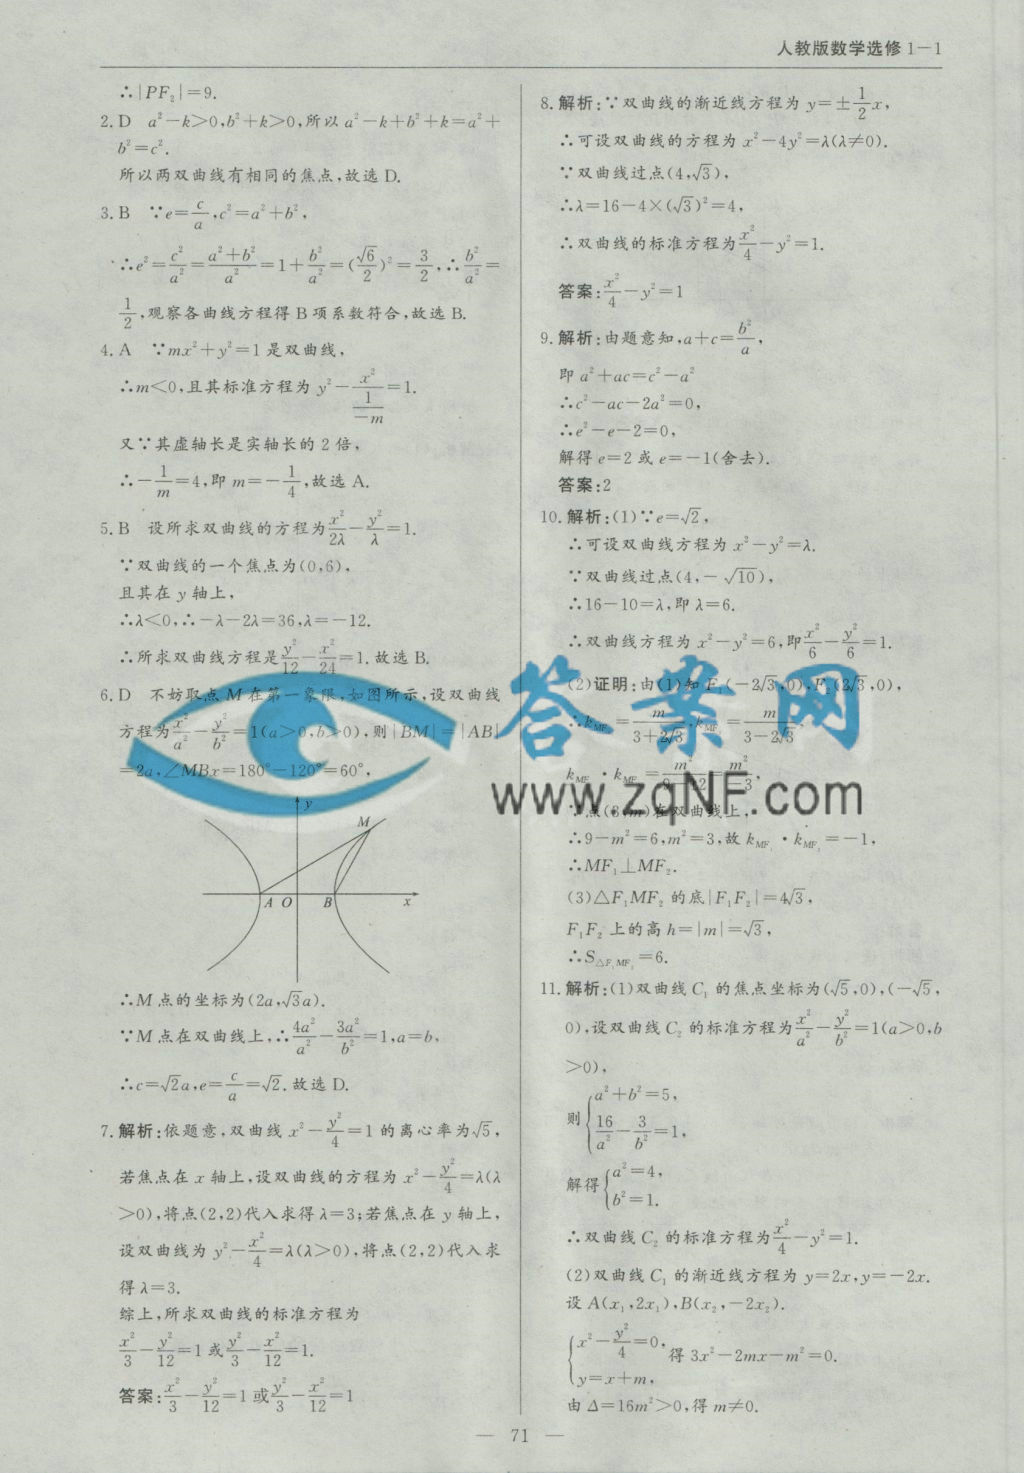 人教版数学选修1-1
∴|PF₂|=9.
2. D  a²-k>0,b²+k>0,所以a²-k+b²+k=a²+
b²=c².
所以两双曲线有相同的焦点,故选D.
3. B  ∵e=c/a,c²=a²+b²,
∴e²=c²/a²=(a²+b²)/a²=1+b²/a²=(√6/2)²=3/2,∴b²/a²=
1/2,观察各曲线方程得B项系数符合,故选B.
4. A  ∵mx²+y²=1是双曲线,
∴m<0,且其标准方程为y²-x²/(1/-m)=1.
又∵其虚轴长是实轴长的2倍,
∴-1/m=4,即m=-1/4,故选A.
5. B  设所求双曲线的方程为x²/2λ-y²/λ=1.
∵双曲线的一个焦点为(0,6),
且其在y轴上,
∴λ<0,∴-λ-2λ=36,λ=-12.
∴所求双曲线方程是y²/12-x²/24=1.故选B.
6. D  不妨取点M在第一象限,如图所示,设双曲线
方程为x²/a²-y²/b²=1(a>0,b>0),则|BM|=|AB|
=2a,∠MBx=180°-120°=60°,
y
M
A O B x
∴M点的坐标为(2a,√3a).
∵M点在双曲线上,∴4a²/a²-3a²/b²=1,a=b,
∴c=√2a,e=c/a=√2.故选D.
7. 解析:依题意,双曲线x²-y²/4=1的离心率为√5,
若焦点在x轴上,设双曲线的方程为x²-y²/4=λ(λ
>0),将点(2,2)代入求得λ=3;若焦点在y轴上,
设双曲线为y²-x²/4=λ(λ>0),将点(2,2)代入求
得λ=3.
综上,所求双曲线的标准方程为
x²/3-y²/12=1或y²/3-x²/12=1.
答案:x²/3-y²/12=1或y²/3-x²/12=1
8. 解析:∵双曲线的渐近线方程为y=±1/2x,
∴可设双曲线的方程为x²-4y²=λ(λ≠0).
∵双曲线过点(4,√3),
∴λ=16-4×(√3)²=4,
∴双曲线的标准方程为x²/4-y²=1.
答案:x²/4-y²=1
9. 解析:由题意知,a+c=b²/a,
即a²+ac=c²-a²
∴c²-ac-2a²=0,
∴e²-e-2=0,
解得e=2或e=-1(舍去).
答案:2
10. 解析:(1)∵e=√2,
∴可设双曲线方程为x²-y²=λ.
∵双曲线过点(4,-√10),
∴16-10=λ,即λ=6.
∴双曲线方程为x²-y²=6,即x²/6-y²/6=1.
(2)证明:由(1)知F₁(-2√3,0),F₂(2√3,0),
∴k_MF₁=m/(3+2√3),k_MF₂=m/(3-2√3),
k_MF₁·k_MF₂=m²/(9-12)=-m²/3,
∵点(3,m)在双曲线上,
∴9-m²=6,m²=3,故k_MF₁·k_MF₂=-1,
∴MF₁⊥MF₂.
(3)△F₁MF₂的底|F₁F₂|=4√3,
F₁F₂上的高h=|m|=√3,
∴S△F₁MF₂=6.
11. 解析:(1)双曲线C₁的焦点坐标为(√5,0),(-√5,
0),设双曲线C₂的标准方程为x²/a²-y²/b²=1(a>0,b
>0),
则{a²+b²=5,
16/a²-3/b²=1,
解得{a²=4,
b²=1.
∴双曲线C₂的标准方程为x²/4-y²=1.
(2)双曲线C₁的渐近线方程为y=2x,y=-2x.
设A(x₁,2x₁),B(x₂,-2x₂).
{x²-y²/4=0,
y=x+m,
得3x²-2mx-m²=0.
由Δ=16m²>0,得m≠0.
答案网
www.zqNF.com
— 71 —